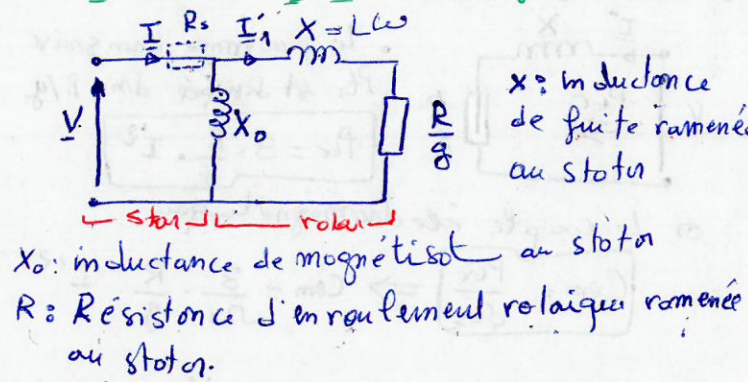 I Rs I'1 X = Lω
V X₀ R/g
X: inductance
de fuite ramenée
au stator
stator rotor
X₀: inductance de magnétisat au stator
R: Résistance d'enroulement rotorique ramenée
au stator.